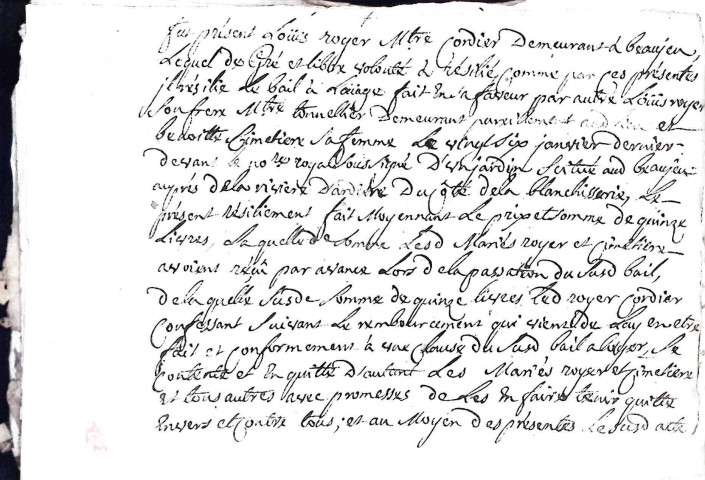 fut présent Loüis royer Mtre Cordier Demeurant à beaujeu,
Lequel de Gré et libre volonté à résilié Comme par ces présentes
il résilie le bail à Loüage fait En sa faveur par autre Loüis royer
Son frere Mtre tonnellier Demeurant pareillement aud lieu et
benoitte Cimetiere Sa femme Le vingt Six janvier dernier
devant le nore royal soussigné D'un jardin Scitué aud beaujeu
auprés de la riviére D'ardiére Du Côté de la blanchisserie, Le
présent résiliement fait Moyennant Le prix et Somme de quinze
Livres, Laquelle de Somme Lesd Mariés royer et Cimetiére
avoient réçû par avance Lors de la passation du Susd bail,
de laquelle Susde Somme de quinze livres Led royer Cordier
Confessant Suivant Le rembourcement qui vient de Luy en etre
fait et Conformement à une Clause du Susd bail a loyer, Se
Contente et En quitte D'autant Les Mariés royer et Cimetiere
et tous autres avec promesses de Les En faire tenir quitte
Envers et Contre tous; et au Moyen des présentes Le Susd acte